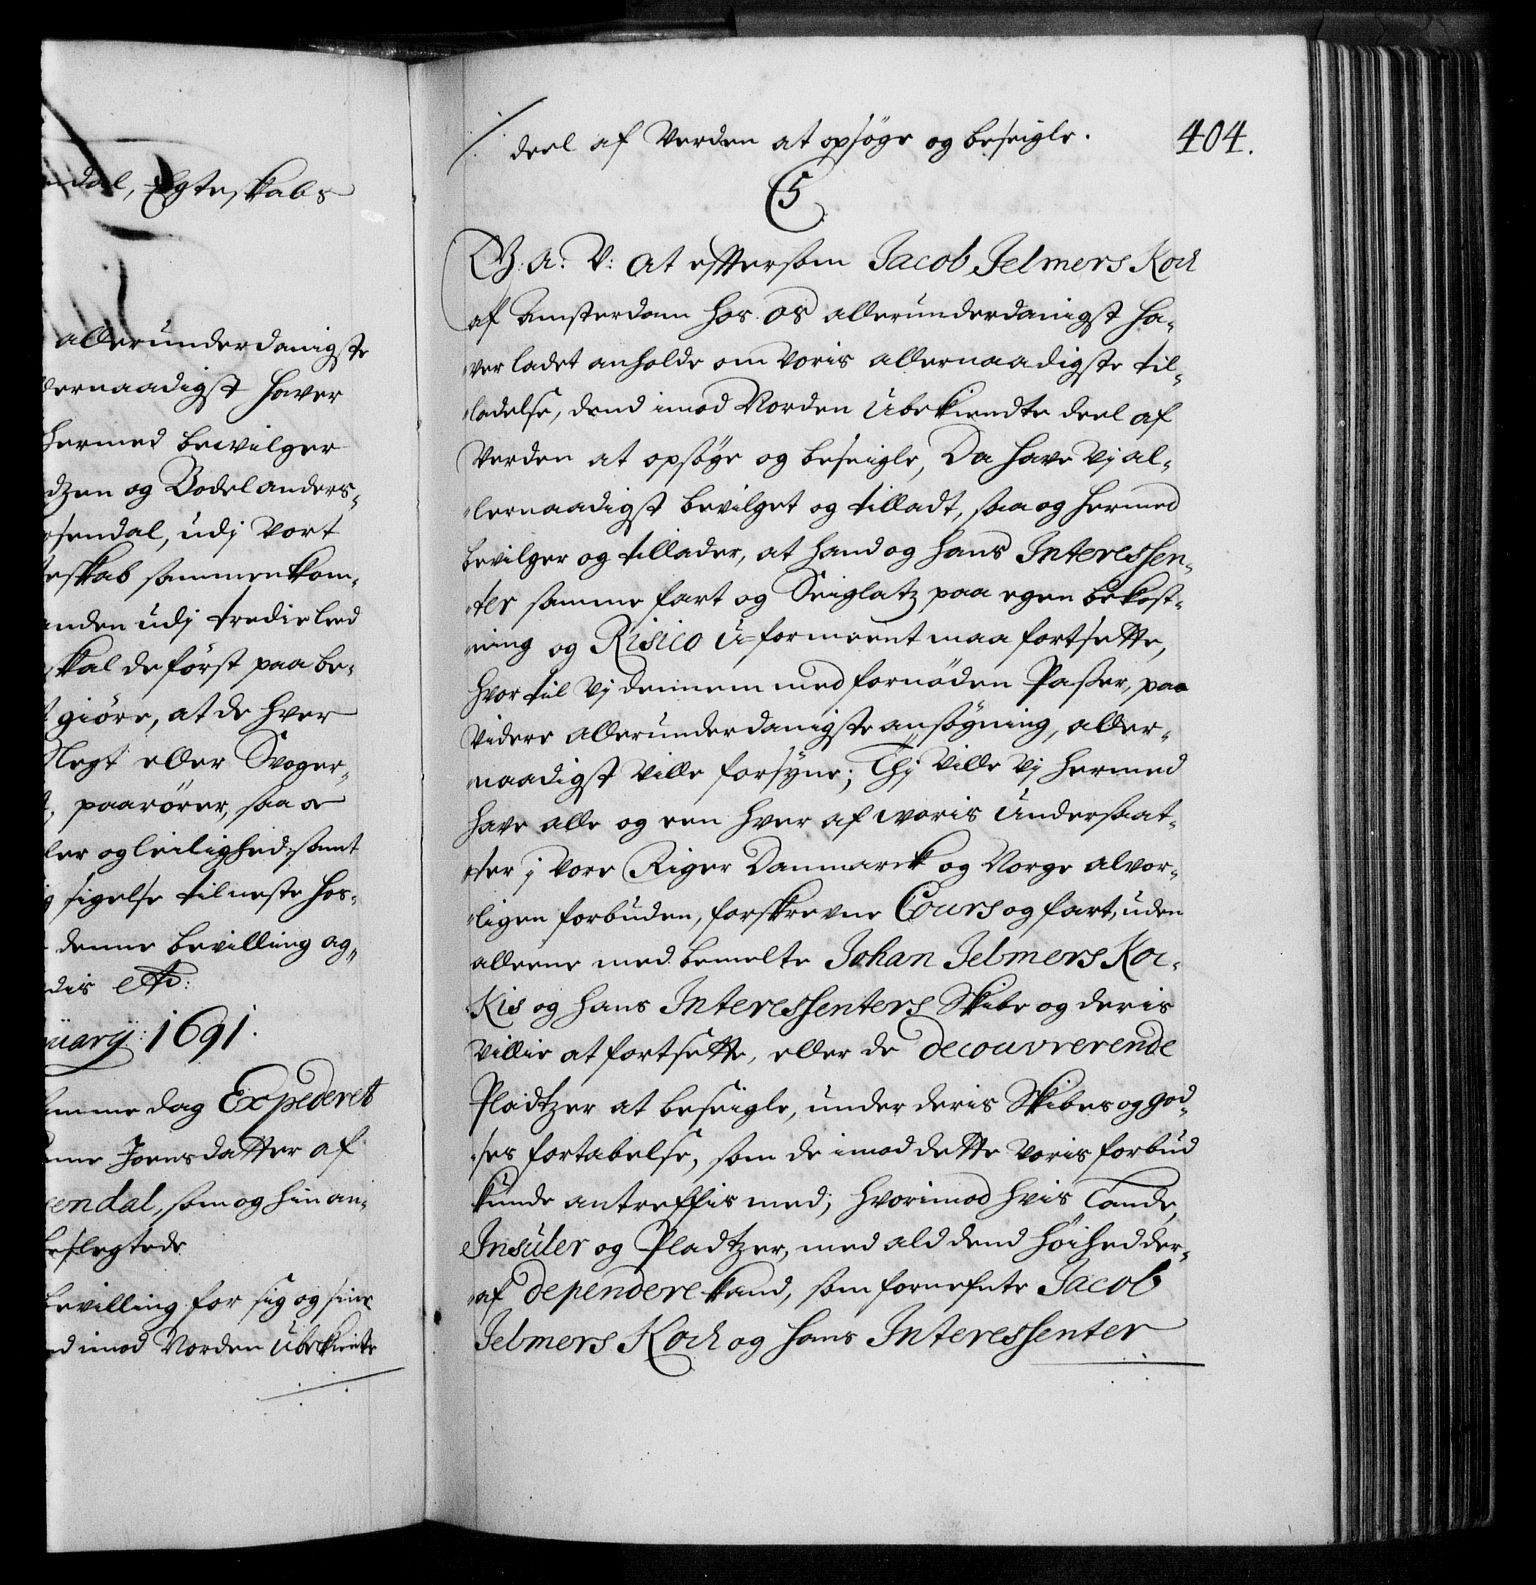 dal, Egteskabs
allerunderdanigste
lernaadigst haver
hermed bewilger
dzen og Bodel anders-
osendal, udj vort
teskab sammenkom-
anden udj tredie leed
skal de först paa be-
giöre, at de hver
Slegt eller Svoger-
paarörer, saa
ler og leilighed, samt
sigelse til neste hos-
denne bevilling ag-
dis etc:
uarij: 1691.
amme dag Expederet
Joensdatter af
endal, som og hinan-
beslegtede
bevilling for sig og sine
d imod Norden Ubekiente
deel af Verden at opsöge og beseigle.
404.
5
G. A: V: At eftersom Jacob Jelmers Koch
af Amsterdam hos os allerunderdanigst ha-
ver ladet anholde om voris allernaadigste til-
ladelse, dend imod Norden Ubekiendte deel af
Verden at opsöge og beseigle, Da have Vj al-
lernaadigst bevilget og tilladt, saa og hermed
bevilger og tillader, at hand og hans Interessen-
ter samme fart og Seiglatz paa egen bekost-
ning og Risico U-formeent maa fortsette,
hvortil Vj dennem med fornöden Passer, paa
videre allerunderdanigste ansögning, aller-
naadigst ville forsyne; Thj ville Vj hermed
have alle og een hver af woris Undersaat-
ter j vore Riger Danmarck og Norge alvor-
ligen forbuden, forskrevne Cours og fart, uden
alleene med bemelte Johan Jelmers Koc-
Kis og hans Interessenters Skibe og deris
villie at fortsette, eller de decouvrerende
Pladtzer at beseigle, under deris Skibes og god-
ses fortabelse, som de imod dette voris forbud
kunde antreffis med; hvorimod hvis Lande,
Insuler og Pladtzer, med ald dend höihed der-
af dependere kand, som fornefnte Jacob
Jelmers Koch og hans Interessenter